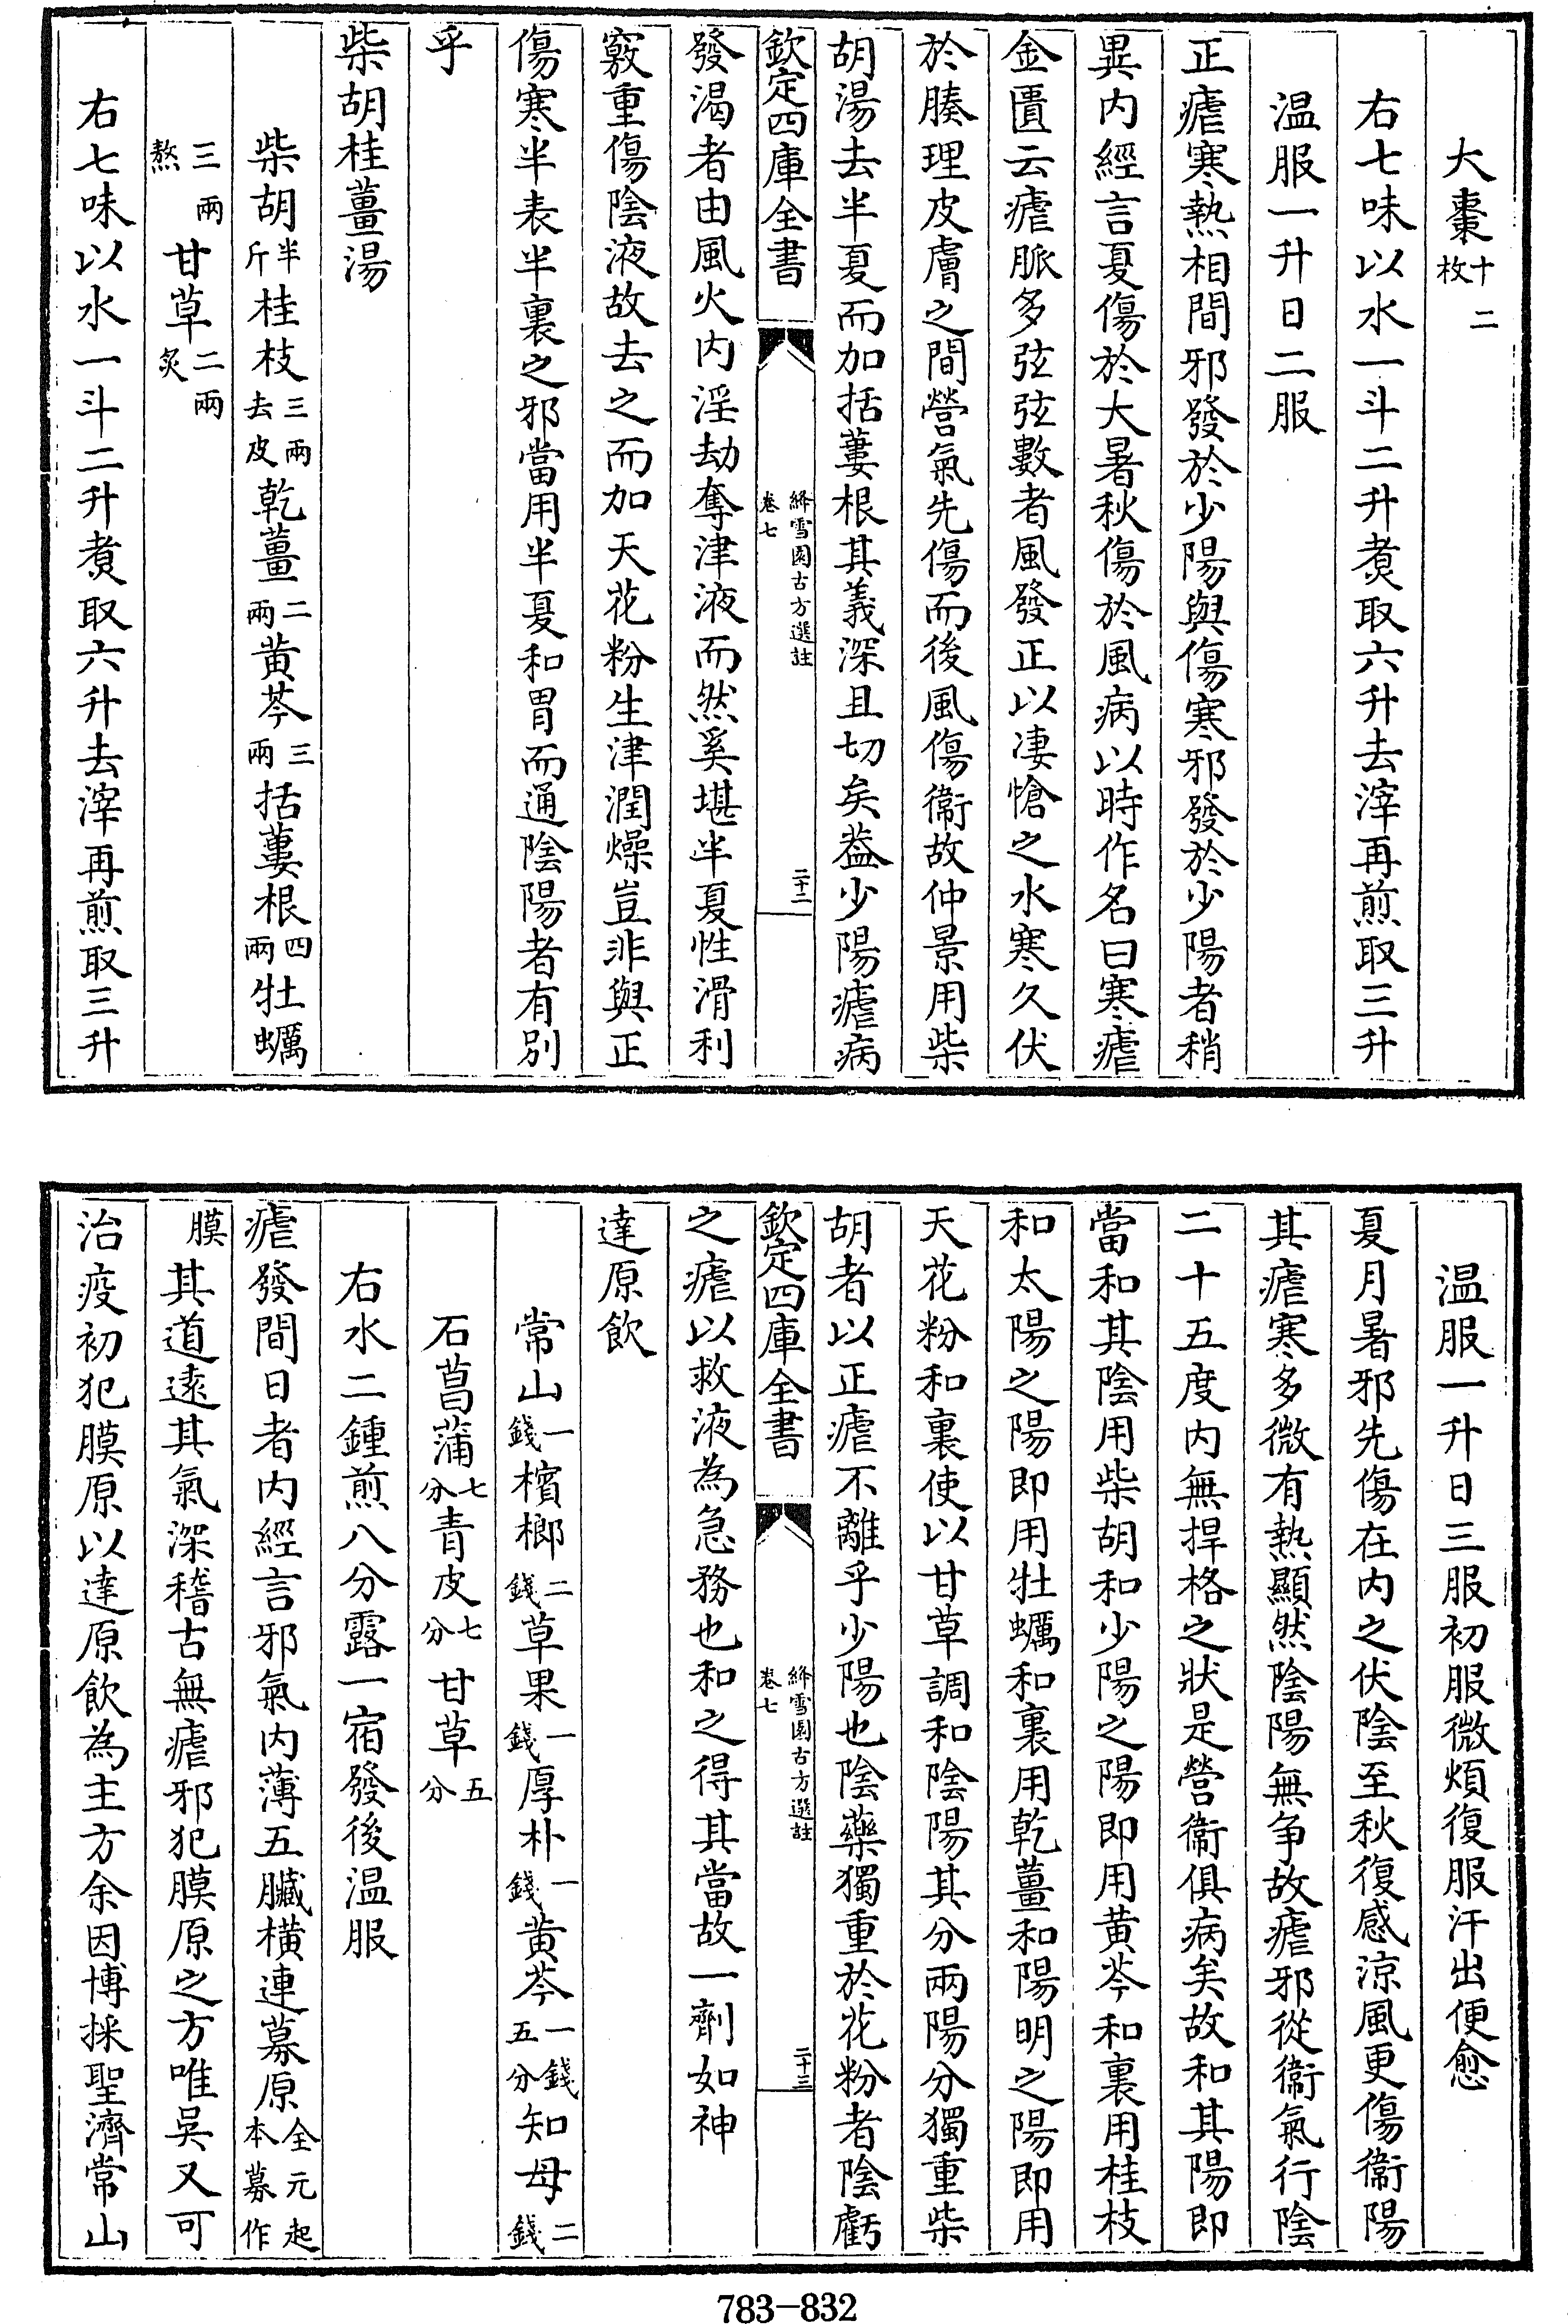 大棗十二枚
右七味以水一斗二升煑取六升去滓再煎取三升
温服一升日二服
正瘧寒熱相間邪發於少陽與傷寒邪發於少陽者稍
異内經言夏傷於大暑秋傷於風病以時作名曰寒瘧
金匱云瘧脈多弦弦數者風發正以凄愴之水寒久伏
於腠理皮膚之間營氣先傷而後風傷衞故仲景用柴
胡湯去半夏而加括蔞根其義深且切矣葢少陽瘧病
欽定四庫全書
絳雪園古方選註
卷七
二十二
發渴者由風火内淫劫奪津液而然奚堪半夏性滑利
竅重傷陰液故去之而加天花粉生津潤燥豈非與正
傷寒半表半裏之邪當用半夏和胃而通陰陽者有别
乎
柴胡桂薑湯
柴胡半斤桂枝三兩去皮乾薑二兩黄芩三兩括蔞根四兩牡蠣
三兩熬甘草二兩炙
右七味以水一斗二升煑取六升去滓再煎取三升
温服一升日三服初服微煩復服汗出便愈
夏月暑邪先傷在内之伏陰至秋復感涼風更傷衞陽
其瘧寒多微有熱顯然陰陽無争故瘧邪從衞氣行陰
二十五度内無捍格之狀是營衞俱病矣故和其陽即
當和其陰用柴胡和少陽之陽即用黄芩和裏用桂枝
和太陽之陽即用牡蠣和裏用乾薑和陽明之陽即用
天花粉和裏使以甘草調和陰陽其分兩陽分獨重柴
胡者以正瘧不離乎少陽也陰藥獨重於花粉者陰虧
欽定四庫全書
絳雪園古方選註
卷七
二十三
之瘧以救液為急務也和之得其當故一劑如神
達原飲
常山一錢檳榔二錢草果一錢厚朴一錢黄芩一錢五分知母二錢
石菖蒲七分青皮七分甘草五分
右水二鍾煎八分露一宿發後温服
瘧發間日者内經言邪氣内薄五臟横連募原全元起本募作
膜其道遠其氣深稽古無瘧邪犯膜原之方唯吳又可
治疫初犯膜原以達原飲為主方余因博採聖濟常山
783-832